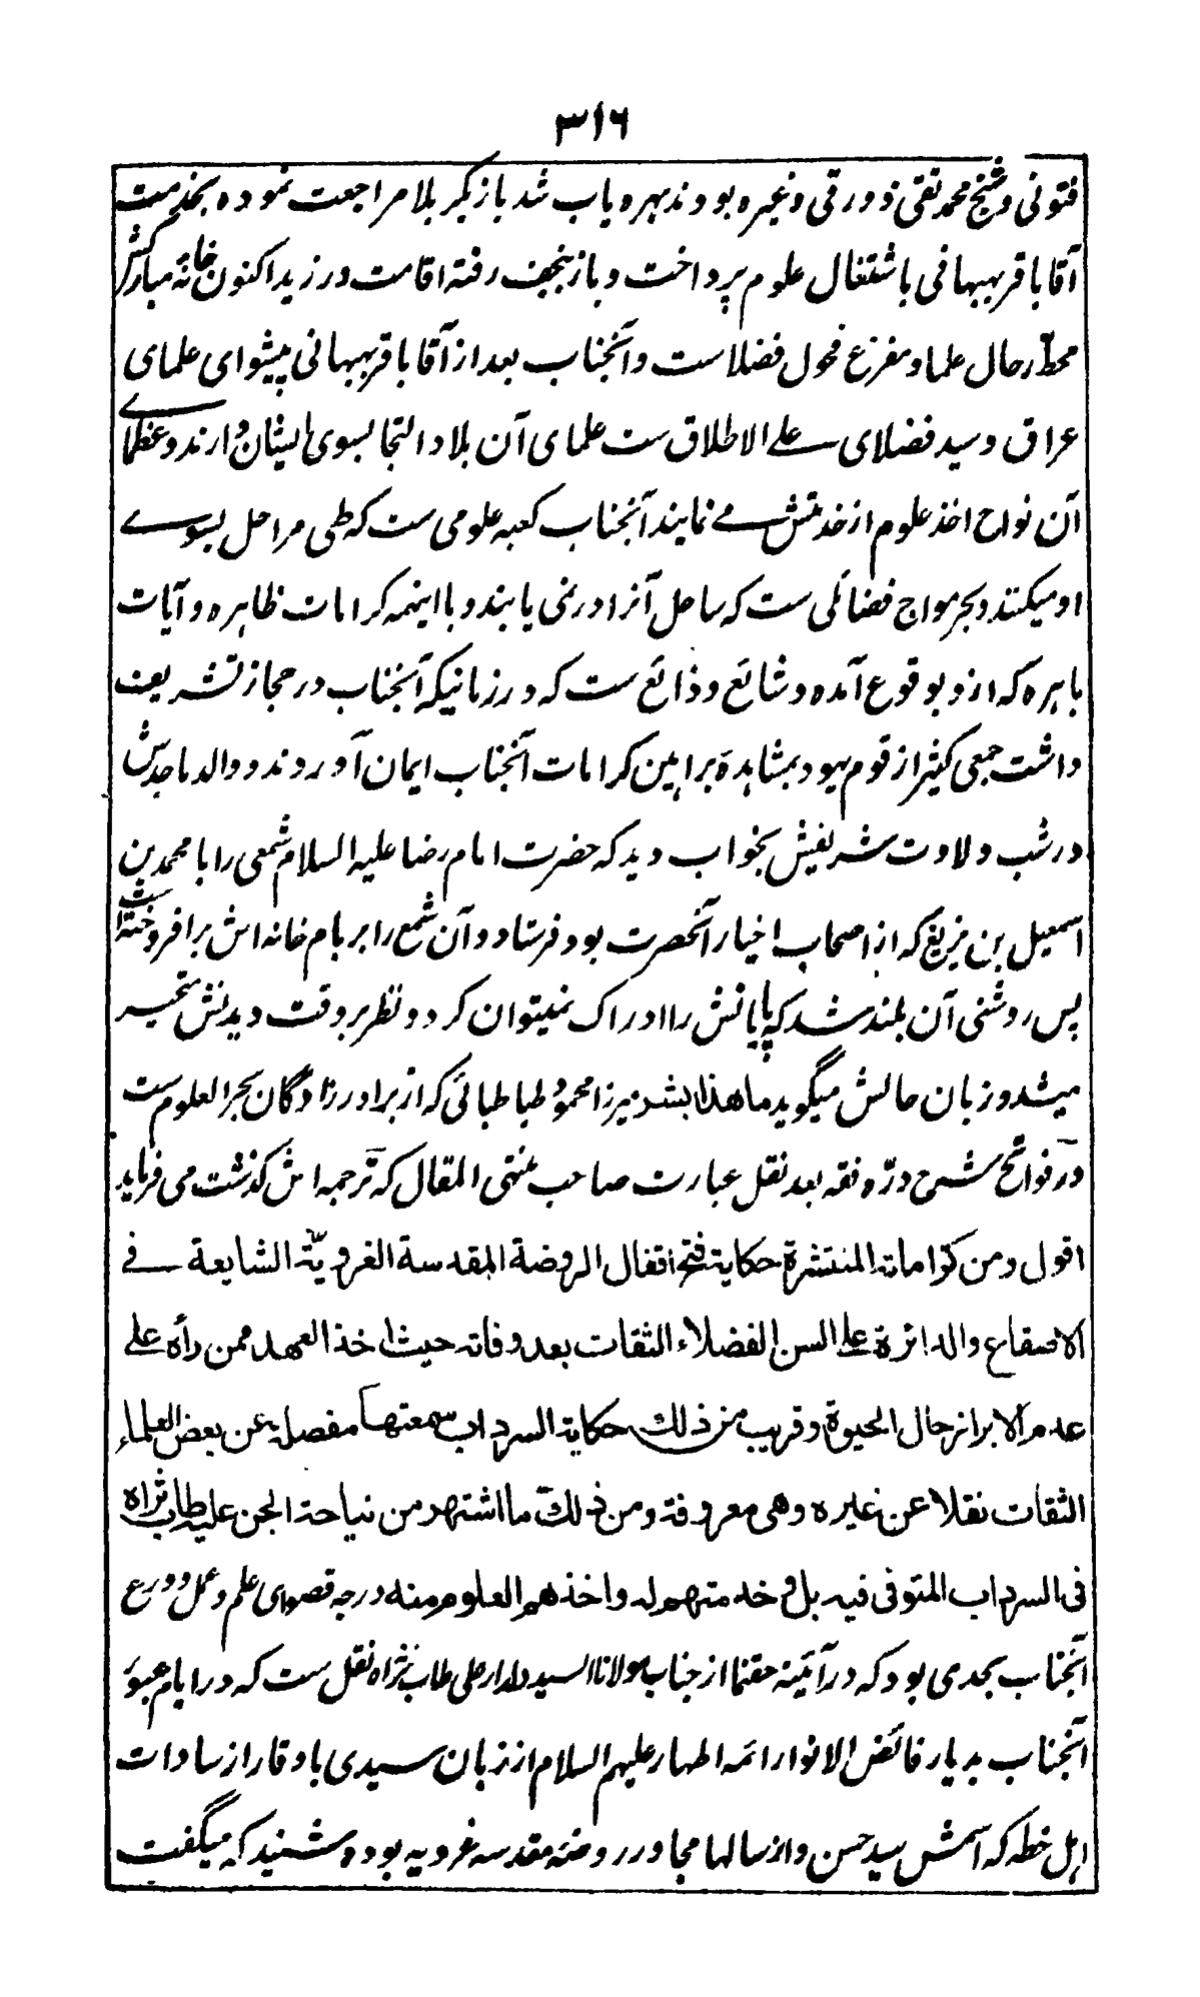 ۳۱۶
فتونی و شیخ محمد تقی دورقی و غیره بودند بهره یاب شد باز بکربلا مراجعت نموده بخدمت
آقا باقر بهبهانی باشتغال علوم پرداخت و باز بنجف رفته اقامت ورزید اکنون خانهٔ مبارکش
محطّ رحال علما و مفزع فحول فضلاست و آنجناب بعد از آقا باقر بهبهانی پیشوای علمای
عراق و سید فضلای علی الاطلاق ست علمای آن بلاد التجا بسوی ایشان دارند و عظمای
آن نواح اخذ علوم از خدمتش می نمایند آنجناب کعبه علومی ست که طی مراحل بسوی
او میکنند و بحر مواج فضائلی ست که ساحل آنرا در نمی یابند و با اینهمه کرامات ظاهره و آیات
باهره که از و بوقوع آمده و شائع و ذائع ست که در زمانیکه آنجناب در حجاز تشریف
داشت جمعی کثیر از قوم یهود بمشاهدهٔ براهین کرامات آنجناب ایمان آوردند و والد ماجدش
در شب ولادت شریفش بخواب دید که حضرت امام رضا علیه السلام شمعی را با محمد بن
اسمعیل بن بزیع که از اصحاب اخیار آنحضرت بود فرستاد و آن شمع را بر بام خانه اش برافروخته است
پس روشنی آن بلند شد که پایانش را ادراک نمیتوان کرد و نظر بر وقت دیدنش متحیر
میشد و زبان حالش میگوید ما هذا بشر میرزا محمود طباطبائی که از برادر زادگان بحر العلوم ست
در فواتح شرح درّه فقه بعد نقل عبارت صاحب منتهی المقال که ترجمه اش گذشت می فرماید
اقول و من کراماته المنتشرة حکایة فتح اقفال الروضة المقدسة الغرویّة الشایعة فی
الاصقاع والدائرة علی السن الفضلاء الثقات بعد وفاته حیث اخذ العهد ممن رأه علی
عدم الابراز حال الحیوة و قریب من ذلك حکایة السرداب سمعتها مفصلة عن بعض العلماء
الثقات نقلا عن غیره وهی معروفة ومن ذلك ما اشتهر من نیاحة الجن علیه طاب ثراه
فی السرداب المتوفی فیه بل و خدمتهم له واخذهم العلوم منه درجه قصوای علم و عمل و ورع
آنجناب بحدی بود که در آئینه حقنما از جناب مولانا السید دلدار علی طاب ثراه نقل ست که در ایام عبور
آنجناب بدیار فائض الانوار ائمه اطهار علیهم السلام از زبان سیدی باوقار از سادات
اهل خطه که اسمش سید حسن و از سالها مجاور روضه مقدسه غرویه بوده شنید که میگفت